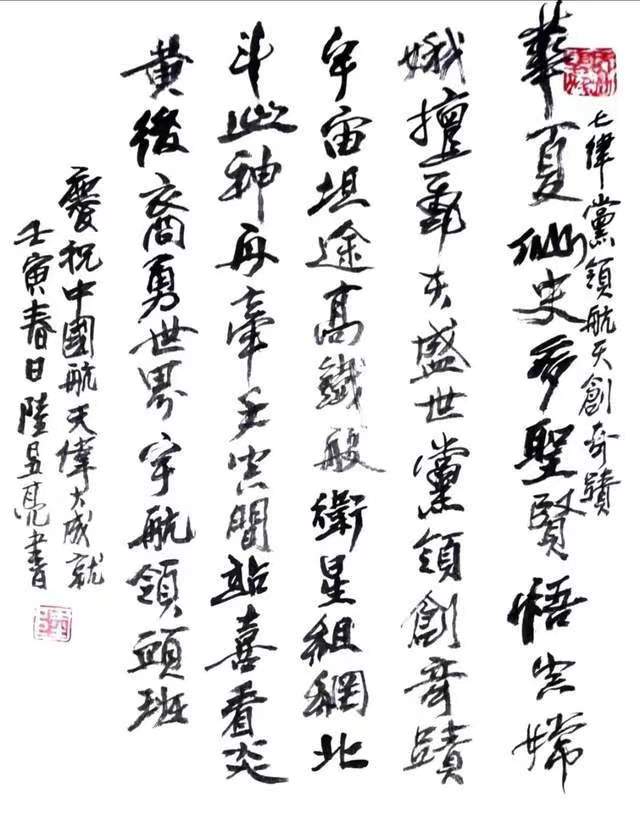 七律黨領航天創奇蹟
華夏仙史多聖賢悟空嫦
娥擅飛天盛世黨領創奇蹟
宇宙坦途高鐵般衛星組網北
斗神舟牽手空間站喜看炎
黃後裔勇世界宇航領頭班
慶祝中國航天偉大成就
壬寅春日陸昱亮書